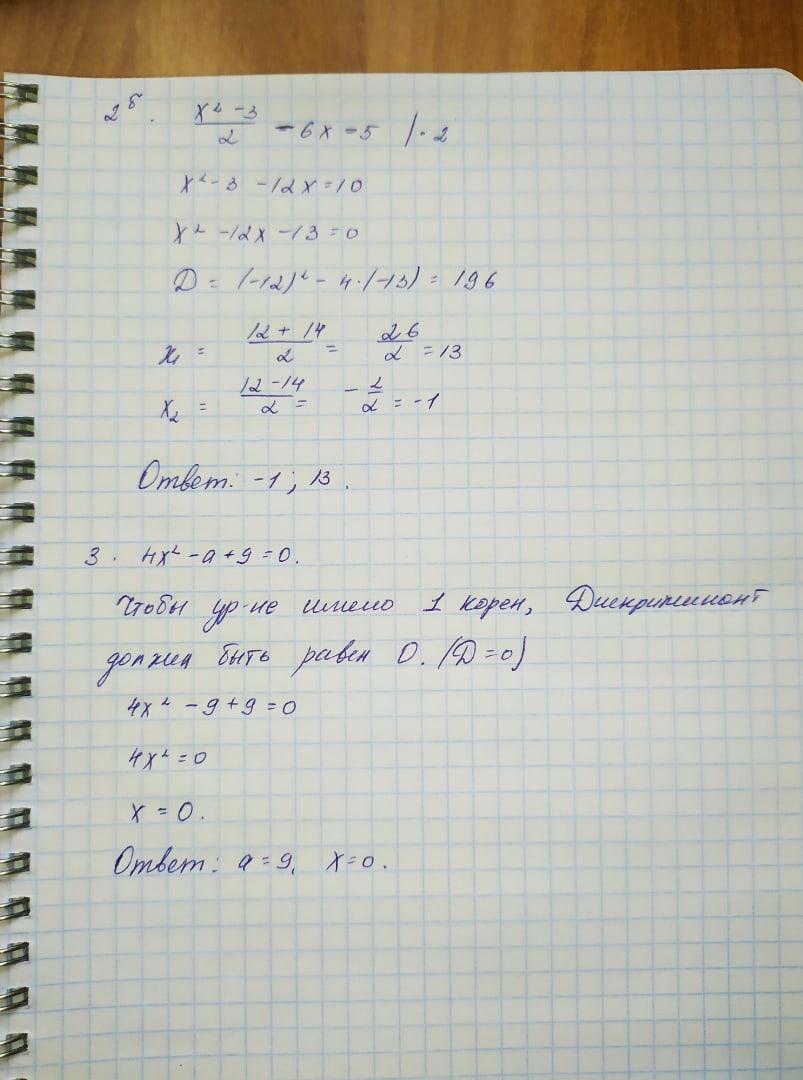 2б. (x² - 3)/2 - 6x - 5 | · 2
x² - 3 - 12x = 10
x² - 12x - 13 = 0
Д = (-12)² - 4·(-13) = 196
x₁ = (12 + 14)/2 = 26/2 = 13
x₂ = (12 - 14)/2 = -2/2 = -1
Ответ: -1; 13.
3. 4x² - a + 9 = 0.
Чтобы ур-не имело 1 корен, Дискриминант
должен быть равен 0. (Д = 0)
4x² - 9 + 9 = 0
4x² = 0
x = 0.
Ответ: a = 9, x = 0.